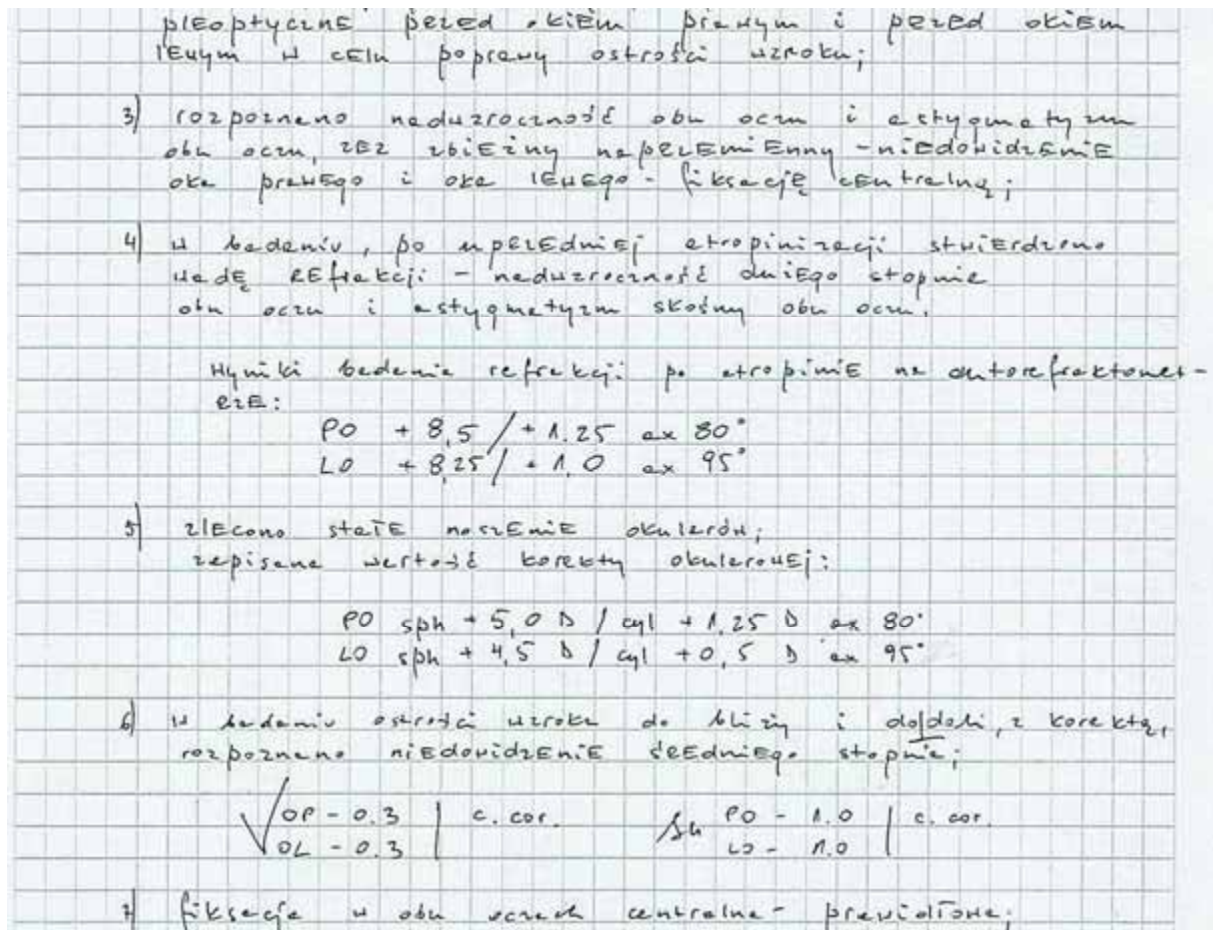 pleoptyczne przed okiem prawym i przed okiem
lewym w celu poprawy ostrości wzroku;
3) rozpoznano nadwzroczność obu oczu i astygmatyzm
obu oczu, zez zbieżny naprzemienny - niedowidzenie
oka prawego i oka lewego - fiksację centralną;
4) w badaniu, po uprzedniej atropinizacji stwierdzono
wadę refrakcji - nadwzroczność dużego stopnia
obu oczu i astygmatyzm skośny obu oczu.
Wyniki badania refrakcji po atropinie na autorefraktomet-
rze:
PO + 8,5 / + 1.25 ax 80°
LO + 8,25 / + 1,0 ax 95°
5) zlecono stałe noszenie okularów;
zapisana wartość korekty okularowej:
PO sph + 5,0 D / cyl + 1,25 D ax 80°
LO sph + 4,5 D / cyl + 0,5 D ax 95°
6) w badaniu ostrości wzroku do bliży i do dali, z korektą,
rozpoznano niedowidzenie średniego stopnia;
OP - 0.3 | c. cor. Sn PO - 1.0 | c. cor.
OL - 0.3 LO - 1.0
7) fiksacja w obu oczach centralna - prawidłowa;